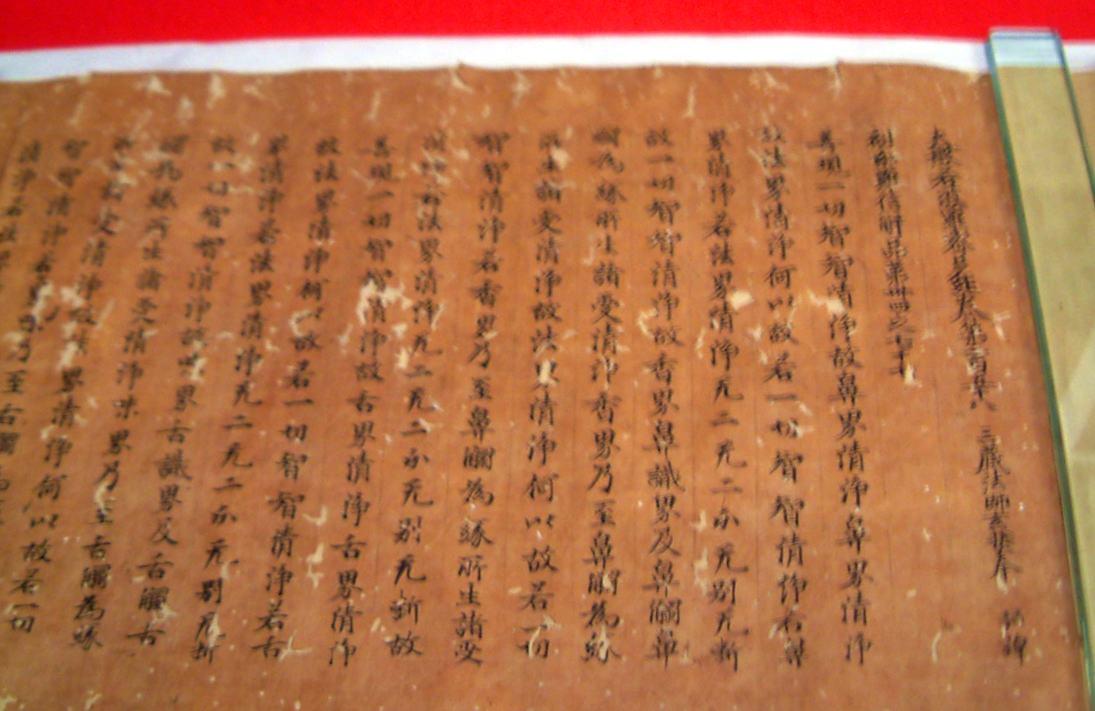 大般若波羅蜜多經卷第二百卌八 三藏法師玄奘奉 詔譯
初分難信解品第卅四之六十七
善現一切智智清淨故鼻界清淨鼻界清淨
故法界清淨何以故若一切智智清淨若鼻
界清淨若法界清淨无二无二分无別无斷
故一切智智清淨故香界鼻識界及鼻觸鼻
觸為緣所生諸受清淨香界乃至鼻觸為緣
所生諸受清淨故法界清淨何以故若一切
智智清淨若香界乃至鼻觸為緣所生諸受
清淨若法界清淨无二无二分无別无斷故
善現一切智智清淨故舌界清淨舌界清淨
故法界清淨何以故若一切智智清淨若舌
界清淨若法界清淨无二无二分无別无斷
故一切智智清淨故味界舌識界及舌觸舌
觸為緣所生諸受清淨味界乃至舌觸為緣
所生諸受清淨故法界清淨何以故若一切
智智清淨若味界乃至舌觸為